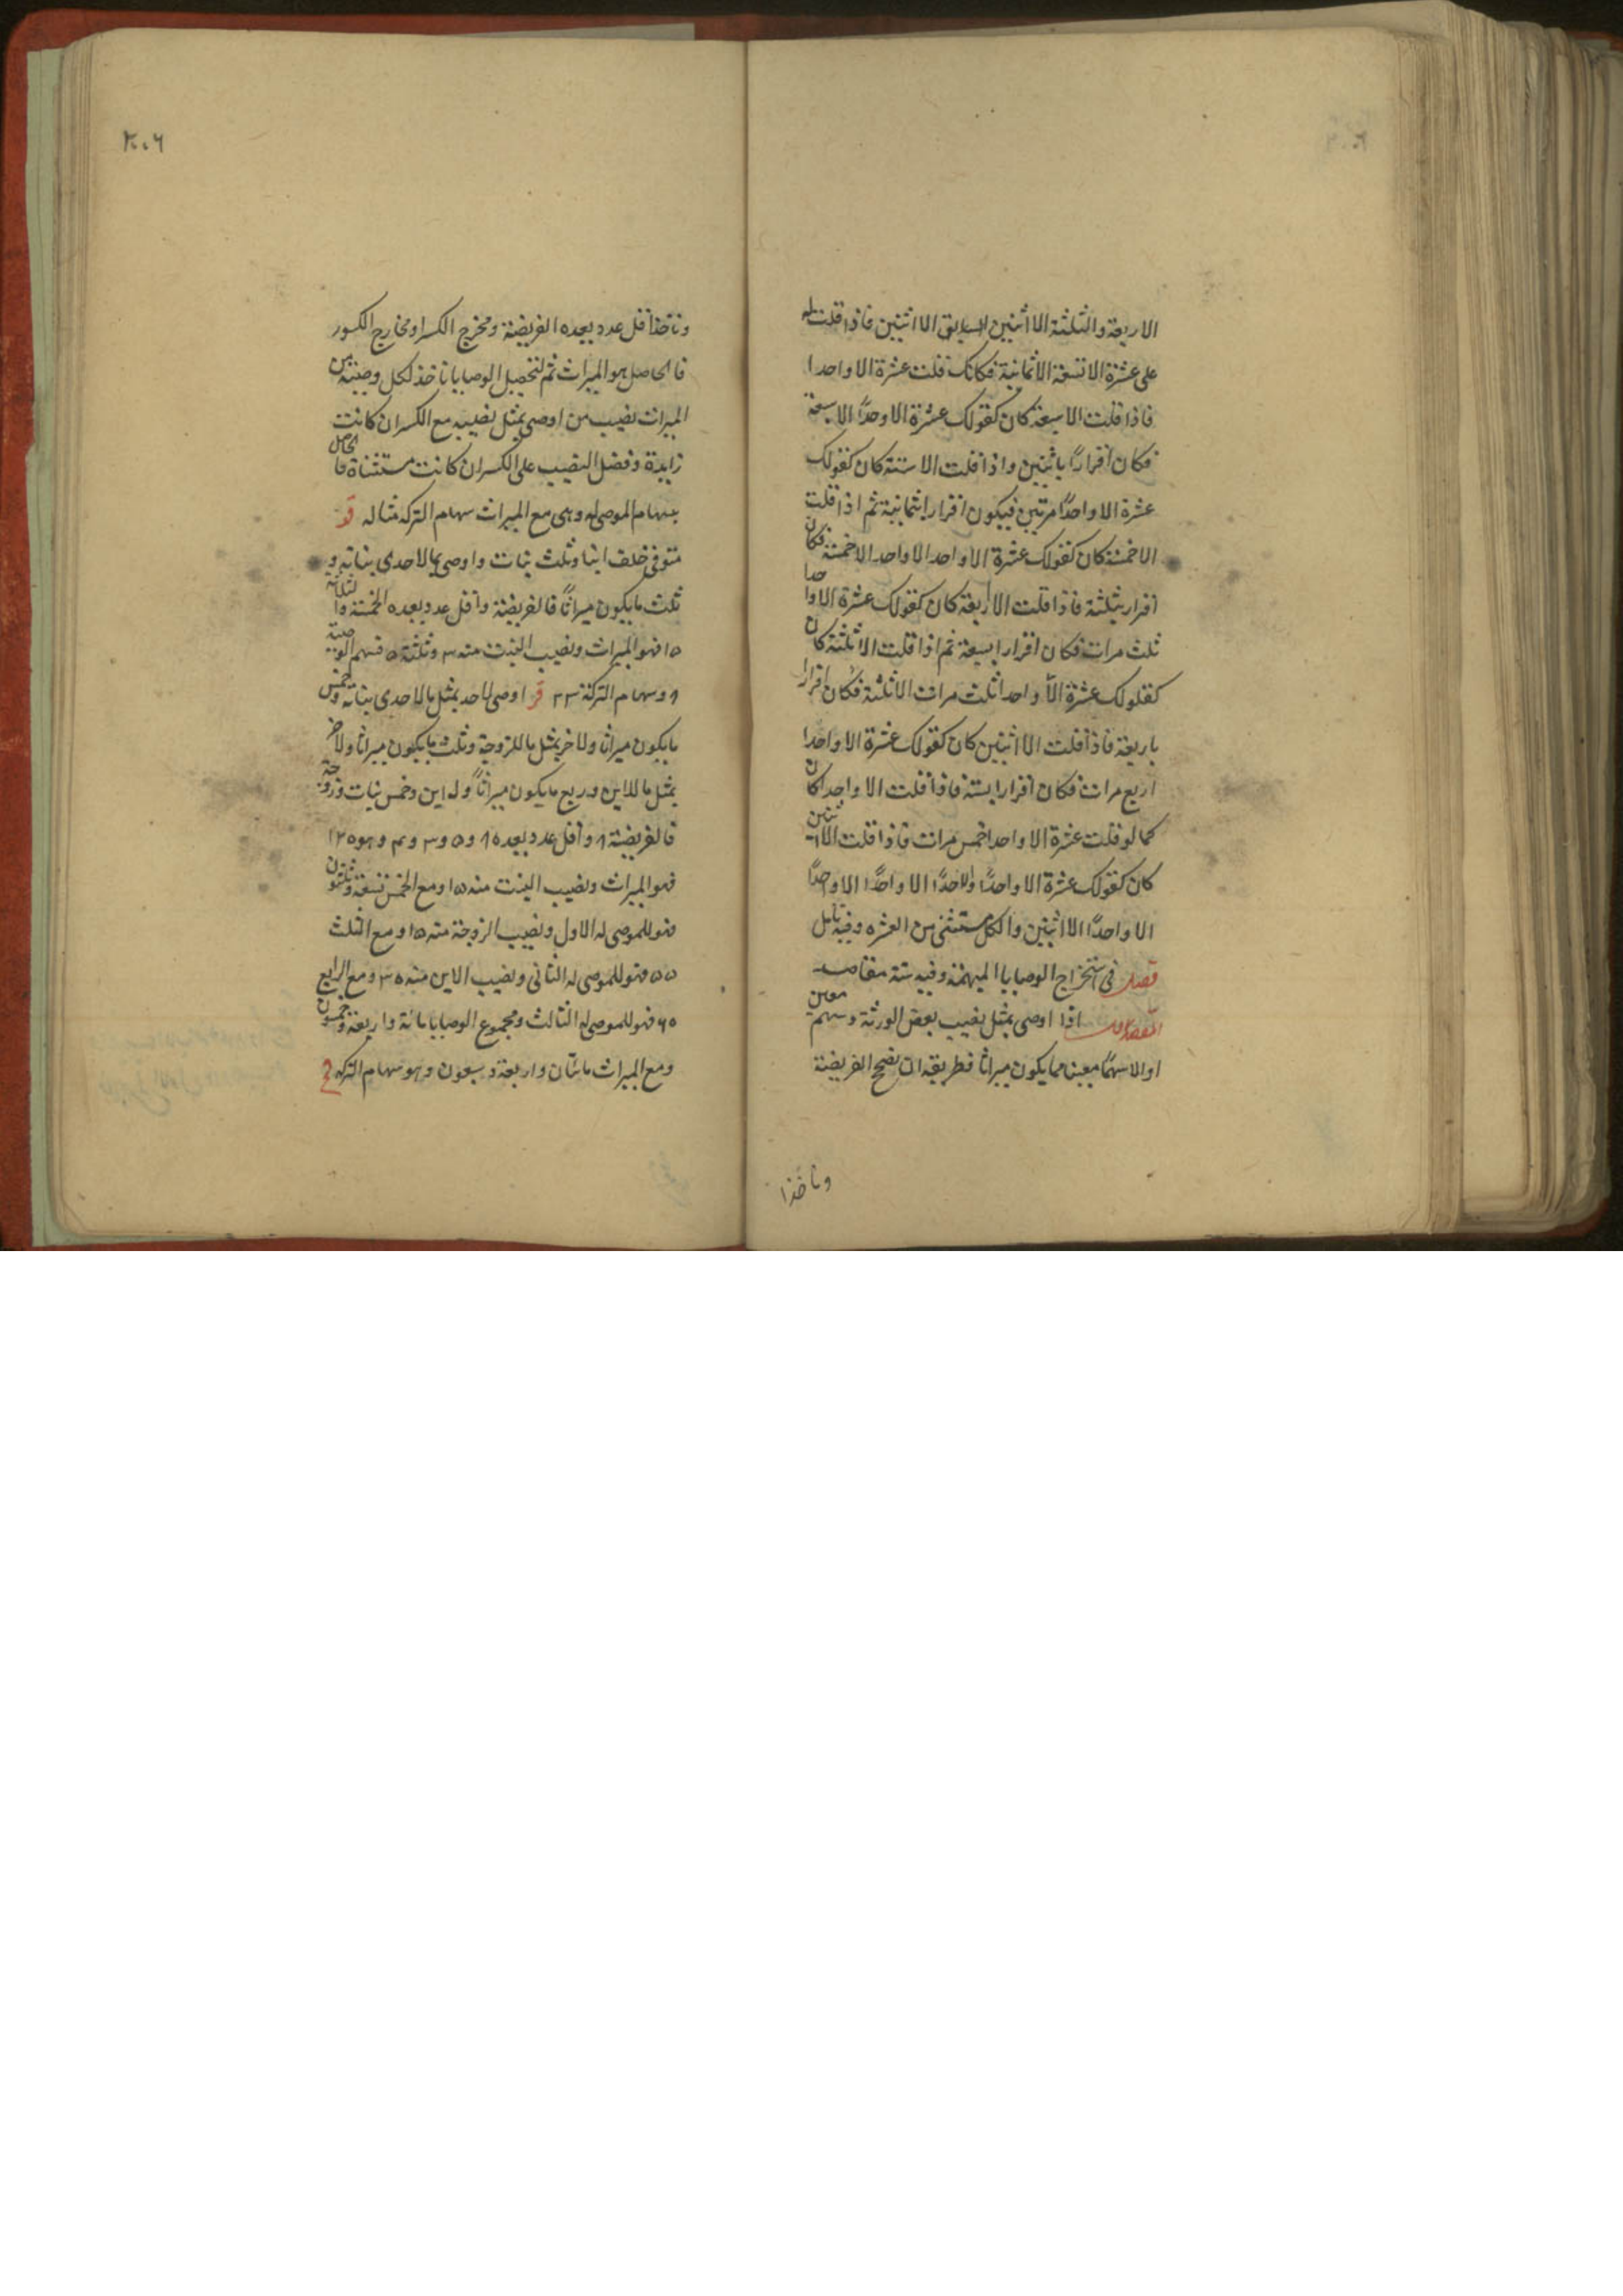 الاربعة والثلثة الا اثنين السابق الا اثنين فاذا قلت له
على عشرة الا تسعة الا ثمانية فكانك قلت عشرة الا واحدا
فاذا قلت الا سبعة كان كقولك عشرة الا وحدًا الا سبعة
فكان اقرارًا باثنين واذا قلت الا ستة كان كقولك
عشرة الا واحدًا مرتين فيكون اقرار بثمانية ثم اذا قلت
الا خمسة كان كقولك عشرة الا واحد الا واحد الا خمسة فكان
اقرار بثلثة فاذا قلت الا اربعة كان كقولك عشرة الا واحدا
ثلث مرات فكان اقرار بسبعة ثم اذا قلت الا ثلثة كان
كقلولك عشرة الا واحدا ثلث مرات الا ثلثة فكان اقرارا
باربعة فاذا قلت الا اثنين كان كقولك عشرة الا واحدا
اربع مرات فكان اقرارا بستة فاذا قلت الا واحد كان
كما لو قلت عشرة الا واحدا خمس مرات فاذا قلت الا اثنين
كان كقولك عشرة الا واحدًا والاحدًا الا واحدًا الا واحدًا
الا واحدًا الا اثنين والكل مستثنى من العشره وفيه تامل
فصل فى استخراج الوصايا المبهمة وفيه ستة مقاصد
المقصد الاول اذا اوصى بمثل نصيب بعض الورثة وسهم معين
او الا سهمًا معين مما يكون ميراثا فطريقه ان تصحح الفريضة
وتاخذا
٣٠٦
وتاخذ اقل عدد يعده الفريضة ومخرج الكسر او مخارج الكسور
فالحاصل هو الميراث ثم لتحصيل الوصايا تاخذ لكل وصية من
الميراث نصيب من اوصى بمثل نصيبه مع الكسر ان كانت
زايدة وفضل النصيب على الكسر ان كانت مستثناة فالحاصل
سهام الموصى له وهى مع الميراث سهام التركه مثاله قو
متوفى خلف ابنا وثلث بنات واوصى بما لاحدى بناته و
ثلث ما يكون ميراثًا فالفريضة واقل عدد يعده الخمسة والثلاثة
١٥ فهو الميراث ونصيب البنت منه ٣ وثلثة ٥ فسهم الوصية
٨ وسهام التركة ٢٣ قز اوصى لاحد بمثل ما لاحدى بناته وخمس
ما يكون ميراثا ولاخر بمثل ما للزوجة وثلث ما يكون ميراثا ولاخر
بمثل ما للابن وربع ما يكون ميراثًا وله ابن وخمس بنات وزوجة
فالفريضة ٨ واقل عدد يعده ٨ و ٥ و ٣ و ٤ وهو ١٢٠
فهو الميراث ونصيب البنت منه ١٥ ومع الخمس تسعة وثلثون
فهو للموصى له الاول ونصيب الزوجة منه ١٥ ومع الثلث
٥٥ فهو للموصى له الثانى ونصيب الابن منه ٣٠ ومع الرابع
٦٠ فهو للموصى له الثالث ومجموع الوصايا مائة واربعة وخمسون
ومع الميراث مائتان واربعة وسبعون وهو سهام التركه